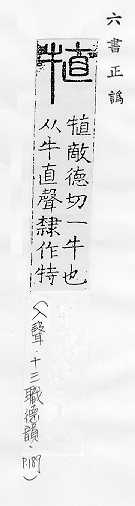 六書正譌
犆
犆敵德切一牛也
从牛直聲隸作特
(入聲·十三職德韻, P.189)